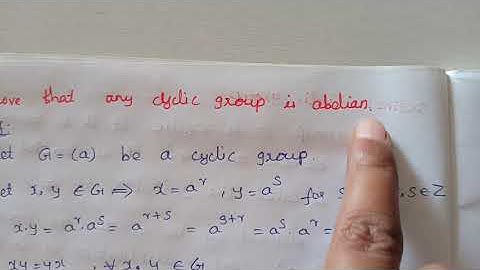 ove that any cyclic group is abelian.
f:
et G = (a) be a cyclic group.
et x, y ∈ G ⇒ x = a^r, y = a^s for s , s ∈ Z
x.y = a^r.a^s = a^{r+s} = a^{s+r} = a^s.a^r =
xy = yx, ∀ x, y ∈ G